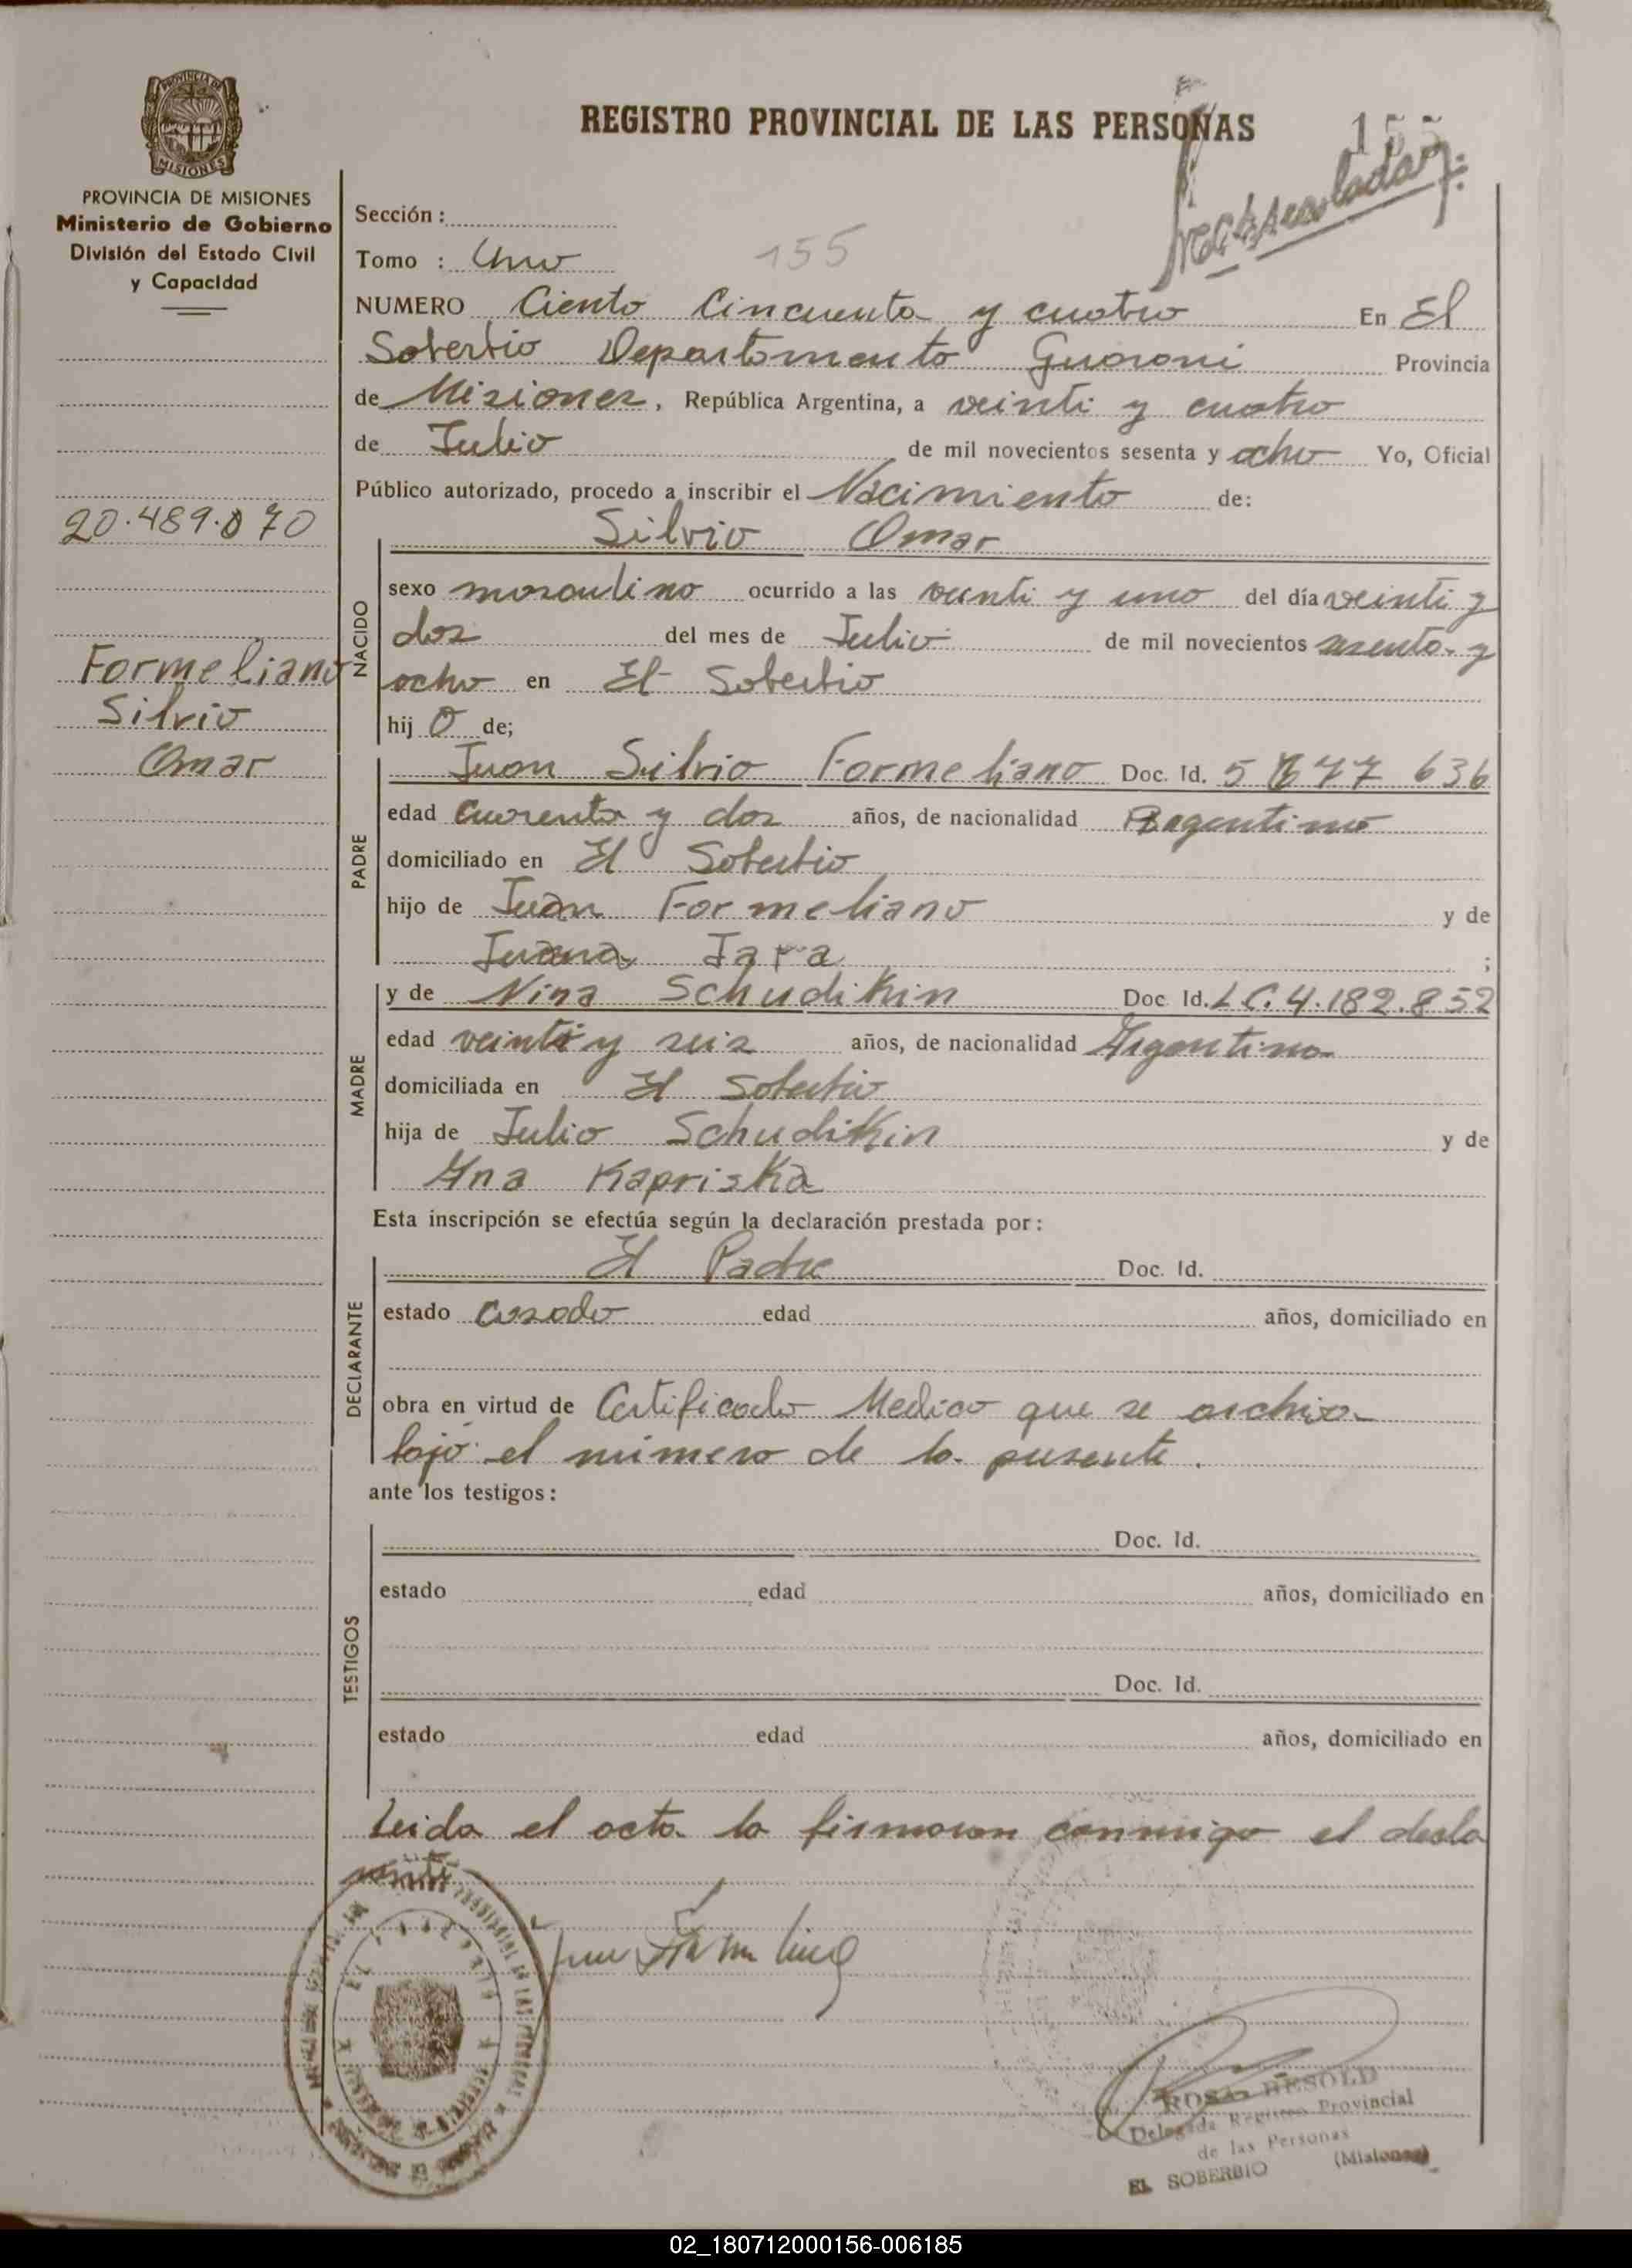 REGISTRO PROVINCIAL DE LAS PERSONAS
155
PROVINCIA DE
MISIONES
PROVINCIA DE MISIONES
Ministerio de Gobierno
División del Estado Civil
y Capacidad
Sección :
Tomo : Uno 155
NUMERO Ciento Cincuenta y cuatro En El
Soberbio Departamento Guarani Provincia
de Misiones, República Argentina, a veinti y cuatro
de Julio de mil novecientos sesenta y ocho Yo, Oficial
Público autorizado, procedo a inscribir el Nacimiento de:
20.489.070
Silvio Omar
NACIDO
sexo masculino ocurrido a las veinti y uno del día veinti y
dos del mes de Julio de mil novecientos sesenta y
ocho en El Soberbio
hij o de;
Formeliano
Silvio
Omar
PADRE
Juan Silvio Formeliano Doc. Id. 5 677 636
edad cuarenta y dos años, de nacionalidad Argentino
domiciliado en El Soberbio
hijo de Juan Formeliano y de
Juana Jara ;
MADRE
y de Nina Schudikin Doc. Id. LC. 4.182.852
edad veinti y seis años, de nacionalidad Argentina
domiciliada en El Soberbio
hija de Julio Schudikin y de
Ana Kapriska
Esta inscripción se efectúa según la declaración prestada por :
DECLARANTE
El Padre Doc. Id.
estado casado edad años, domiciliado en
obra en virtud de Certificado Medico que se archiva
bajo el número de la presente.
ante los testigos :
TESTIGOS
Doc. Id.
estado edad años, domiciliado en
Doc. Id.
estado edad años, domiciliado en
Leida el acta la firmaron conmigo el decla
rante
ROSA HESOLD
Delegada Registro Provincial
de las Personas
EL SOBERBIO (Misiones)
02_180712000156-006185